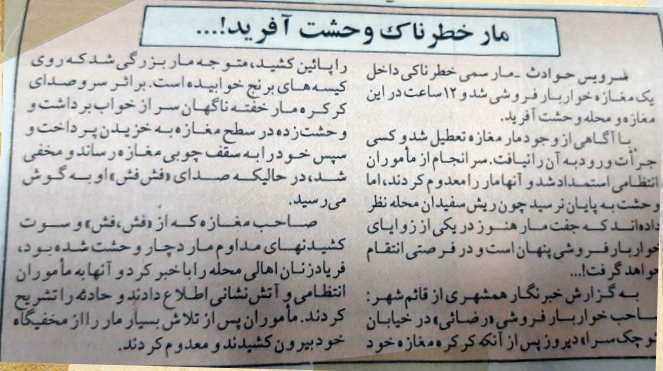 مار خطرناک وحشت آفرید!...
سرویس حوادث - مار سمی خطرناکی داخل
یک مغازه خواربار فروشی شد و ۱۲ ساعت در این
مغازه و محله وحشت آفرید.
با آگاهی از وجود مار مغازه تعطیل شد و کسی
جرأت ورود به آن را نیافت. سرانجام از مأموران
انتظامی استمداد شد و آنها مار را معدوم کردند، اما
وحشت به پایان نرسید چون ریش سفیدان محله نظر
داده‌اند که جفت مار هنوز در یکی از زوایای
خواربار فروشی پنهان است و در فرصتی انتقام
خواهد گرفت!...
به گزارش خبرنگار همشهری از قائم شهر:
صاحب خواربار فروشی «رضائی» در خیابان
کوچک سرا» دیروز پس از آنکه کرکره مغازه خود
را پائین کشید، متوجه مار بزرگی شد که روی
کیسه‌های برنج خوابیده است. بر اثر سروصدای
کرکره مار خفته ناگهان سر از خواب برداشت و
وحشت‌زده در سطح مغازه به خزیدن پرداخت و
سپس خود را به سقف چوبی مغازه رساند و مخفی
شد، در حالیکه صدای «فش فش» او به گوش
می‌رسید.
صاحب مغازه که از «فش، فش» و سوت
کشیدنهای مداوم مار دچار وحشت شده بود،
فریادزنان اهالی محله را با خبر کرد و آنها به مأموران
انتظامی و آتش‌نشانی اطلاع دادند و حادثه را تشریح
کردند. مأموران پس از تلاش بسیار مار را از مخفیگاه
خود بیرون کشیدند و معدوم کردند.